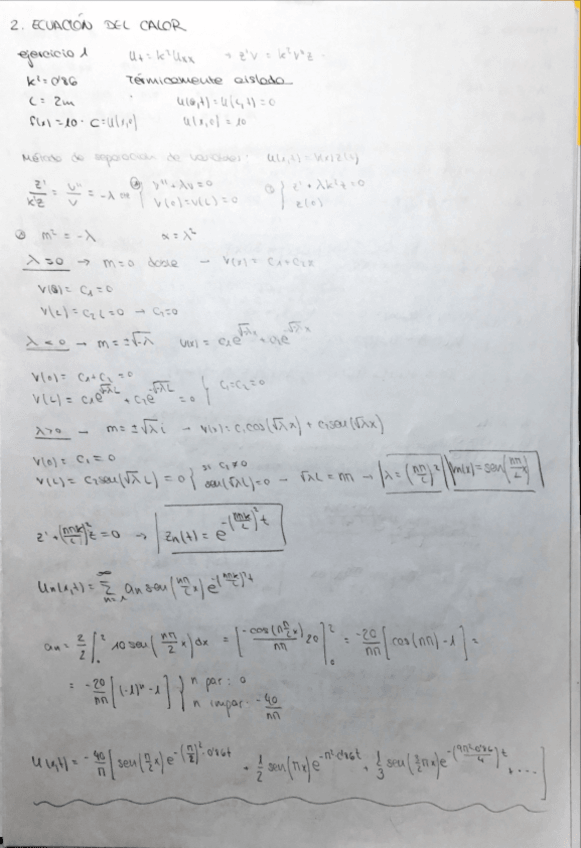 2. ECUACIÓN DEL CALOR
ejercicio 1 Ut = k²Uxx → z'v = k²v''z
k² = 0'86 Térmicamente aislada
L = 2m U(0,t) = U(L,t) = 0
f(x) = 10·C = U(x,0) U(x,0) = 10
Método de separación de variables: U(x,t) = V(x)Z(t)
z'/k²z = v''/v = -λ ⇒ { v'' + λv = 0 { z' + λk²z = 0
V(0) = V(L) = 0 z(0)
m² = -λ α = λ²
λ = 0 → m = 0 doble → V(x) = C1 + C2x
V(0) = C1 = 0
V(L) = C2 L = 0 → C2 = 0
λ < 0 → m = ±√-λ V(x) = C1e^√-λx + C2e^-√-λx
V(0) = C1 + C2 = 0
V(L) = C1e^√-λL + C2e^-√-λL = 0 } C1 = C2 = 0
λ > 0 → m = ±√λ i → V(x) = C1cos(√λx) + C2sen(√λx)
V(0) = C1 = 0
V(L) = C2sen(√λ L) = 0 } si C2 ≠ 0 sen(√λL) = 0 → √λL = nπ → λ = (nπ/L)² Vn(x) = sen(nπ/L x)
z' + (nπk/L)²z = 0 → Zn(t) = e^-(nπk/L)²t
Un(x,t) = ∞Σn=1 an sen(nπ/L x) e^-(nπk/L)²t
an = 2/2 ∫₀² 10 sen(nπ/2 x)dx = [-cos(nπ/2 x)/nπ 20]₀² = -20/nπ [cos(nπ) - 1] =
= -20/nπ [(-1)ⁿ - 1] } n par: 0
n impar: -40/nπ
U(x,t) = -40/π [sen(π/2 x)e^-(π/2)²·0'86t + 1/2 sen(πx)e^-π²0'86t + 1/3 sen(3/2 πx)e^-(9π²0'86/4)t + ....]